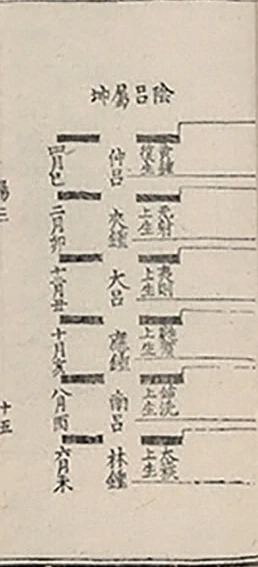 陰呂屬坤
黃鐘復生
仲呂
四月巳
无射上生
夾鐘
二月卯
夷則上生
大呂
十二月丑
蕤賓上生
應鐘
十月亥
姑洗上生
南呂
八月酉
太蔟上生
林鐘
六月未
十五